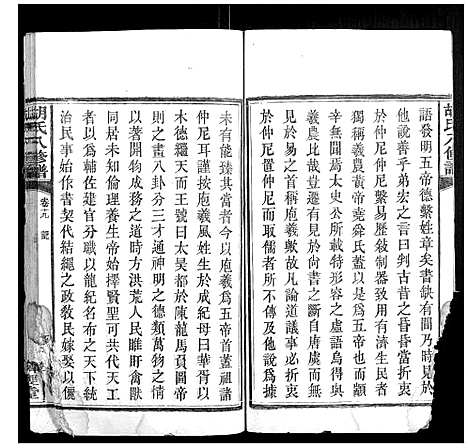 胡氏八修譜
語發明五帝德繫姓章矣書缺有間乃時時見於
他說善乎弟宏之言曰判古昔之昏昏當折衷
於仲尼仲尼繫易歷敘制器致用有濟生民者
獨稱羲農黃帝堯舜氏蓋以是為五帝也而顓
辛無聞焉太史公所載特形容之虛語烏得與
羲農比哉若夫
見於易之首稱庖羲歟故凡論道議事必折衷
於仲尼仲尼而取儒者所傳及他說為據
未有能臻其當者今以庖羲為五帝首蓋祖諸
仲尼耳謹按庖羲風姓生於成紀母曰華胥以
木德繼天而王號曰太昊都於陳龍馬負圖帝
則之畫八卦分三才通神明之德類萬物之情
以著開物成務之道時方洪荒人民雖盱禽獸
同居未知倫理養生帝始擇賢聖可共代天工
者以為輔佐建官分職以龍紀名布之天下統
治民事始作書契代結繩之政教民嫁娶以儷
胡氏八修譜
卷之九
記